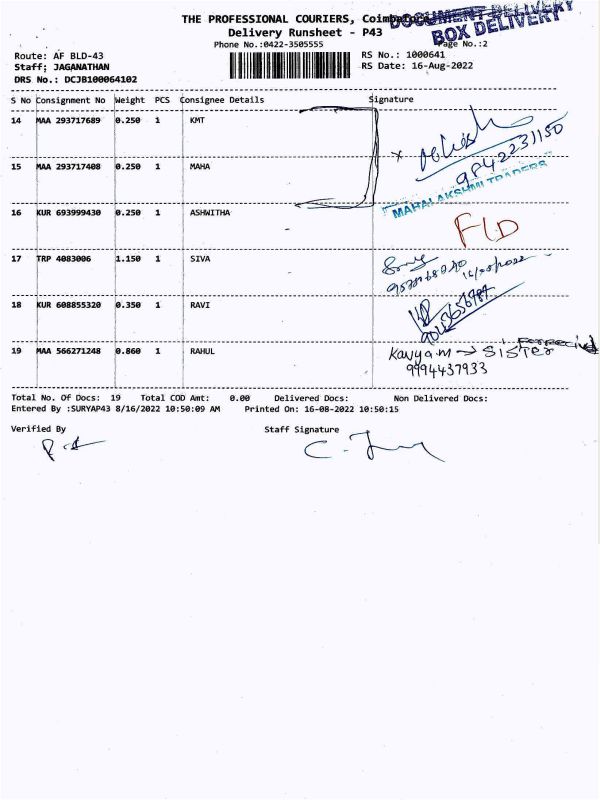 THE PROFESSIONAL COURIERS, Coimbatore
DOCUMENT DELIVERY
BOX DELIVERY
Delivery Runsheet - P43
Phone No.:0422-3505555
Page No.:2
Route: AF BLD-43
RS No.: 1000641
Staff; JAGANATHAN
RS Date: 16-Aug-2022
DRS No.: DCJB100064102
S No Consignment No Weight PCS Consignee Details Signature
14 MAA 293717689 0.250 1 KMT
9842231150
15 MAA 293717408 0.250 1 MAHA
MAHALAKSHMI TRADERS
16 KUR 693999430 0.250 1 ASHWITHA
F/D
17 TRP 4083006 1.150 1 SIVA
18 KUR 608855320 0.350 1 RAVI
19 MAA 566271248 0.860 1 RAHUL
Kavya.m → SISTER
9994437933
Total No. Of Docs: 19 Total COD Amt: 0.00 Delivered Docs: Non Delivered Docs:
Entered By :SURYAP43 8/16/2022 10:50:09 AM Printed On: 16-08-2022 10:50:15
Verified By Staff Signature